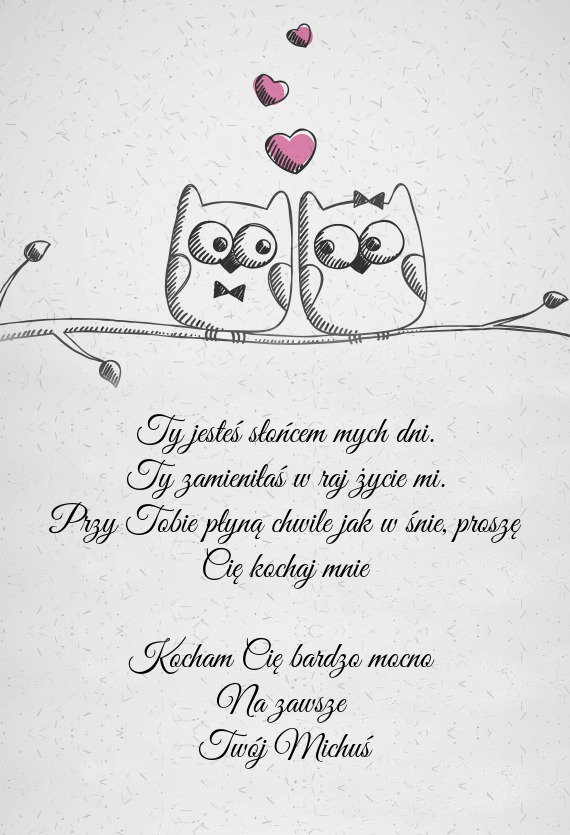 Ty jesteś słońcem mych dni.
Ty zamieniłaś w raj życie mi.
Przy Tobie płyną chwile jak w śnie, proszę
Cię kochaj mnie
Kocham Cię bardzo mocno
Na zawsze
Twój Michuś